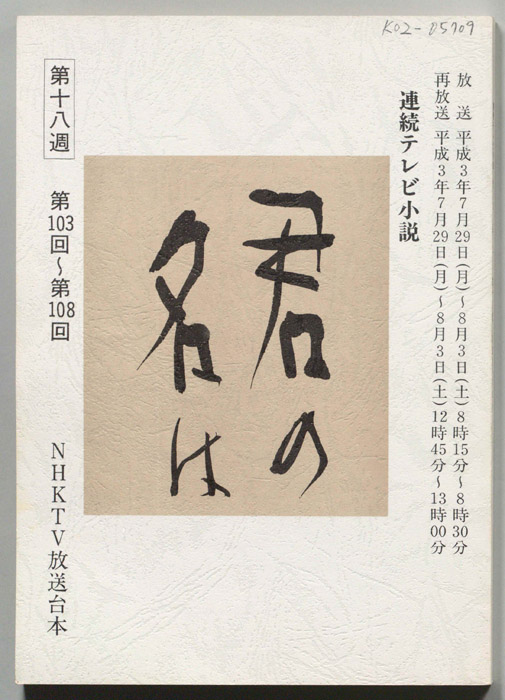 K02-05709
放送 平成3年7月29日(月)～8月3日(土)8時15分～8時30分
再放送 平成3年7月29日(月)～8月3日(土)12時45分～13時00分
連続テレビ小説
君の
名は
第十八週
第103回～第108回
NHKTV放送台本